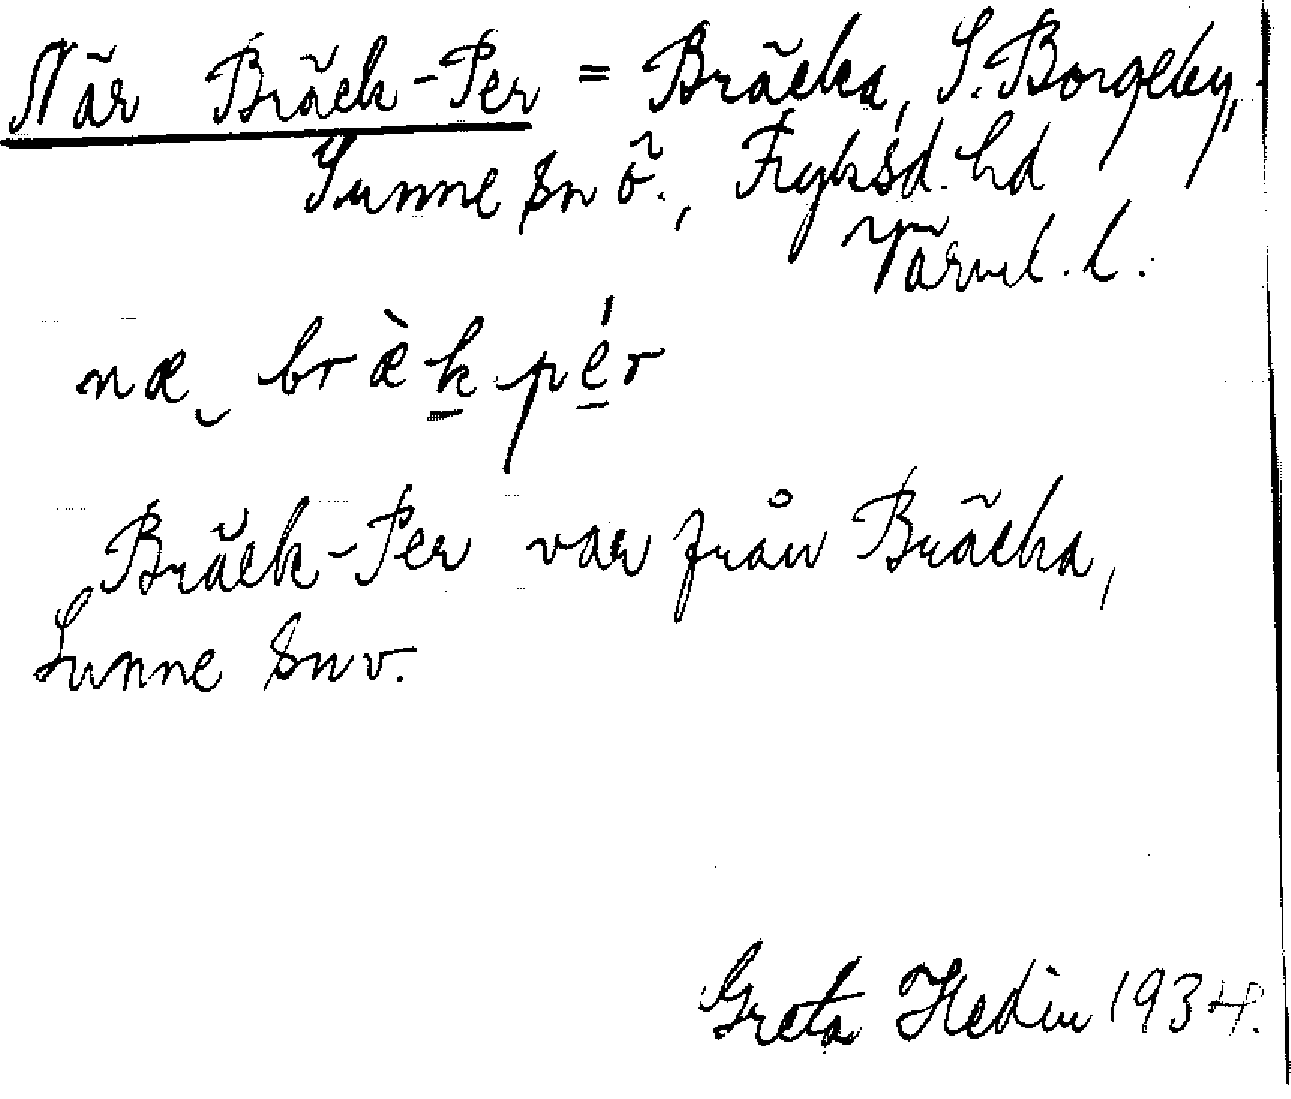 När Bräck-Per = Bräcka, S. Borgeby,
Sunne sn ö., Fryksd. hd
Värml. l.
næ‿ bræ̀k pér
Bräck-Per var från Bräcka,
Sunne sn v.
Greta Hedin 1934.